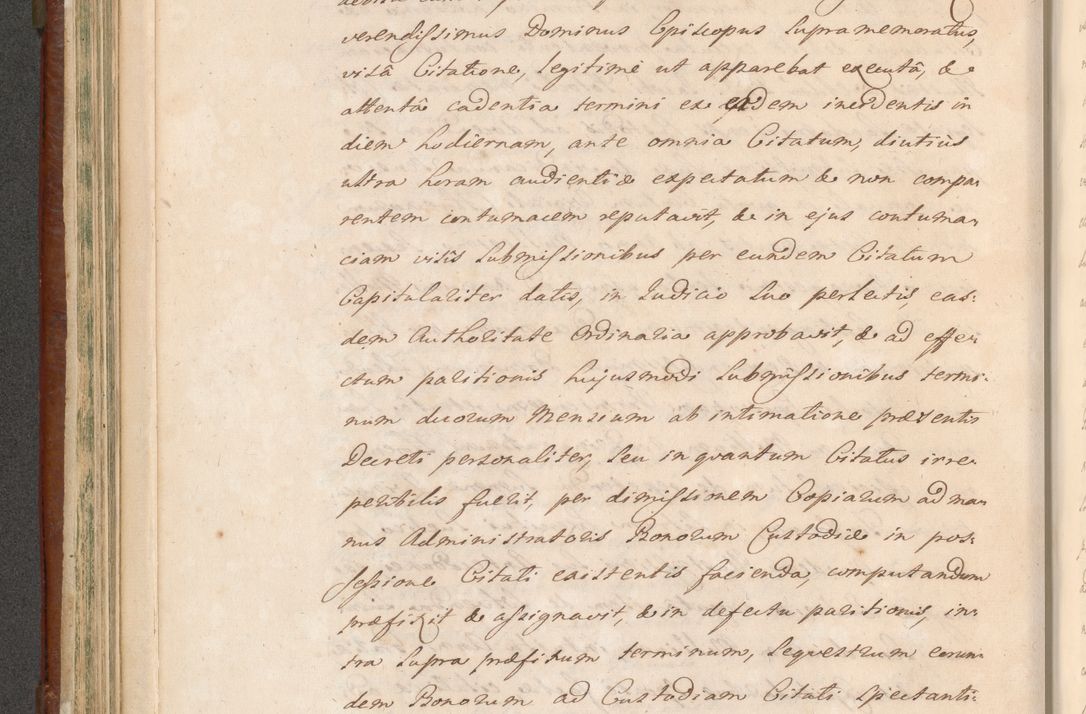 verendissimus Dominus Episcopus supramemoratus,
visâ Citatione, legitime ut apparebat executâ, &
attentâ cadentia termini ex eadem incidentis in
diem hodiernam, ante omnia Citatum, diutius
ultra horam audientiæ expectatum & non compa-
rentem contumacem reputavit, & in ejus contuma-
ciam visis submissionibus per eundem Citatum
Capitulariter datis, in Judicio suo perlectis eas-
dem Authoritate Ordinaria approbavit, & ad effe-
ctum paritionis hujusmodi submissionibus termi-
num duorum Mensium ab intimatione præsentis
Decreti personaliter, seu in quantum Citatus irre-
peribilis fuerit, per dimissionem Copiarum ad ma-
nus Administratoris Bonorum Custodiæ in pos-
sessione Citati existentis facienda, computandum
præfixit & assignavit, & in defectu paritionis, in-
tra supra præfixum terminum, sequestrum eorun-
dem Bonorum ad Custodiam Citati spectanti-